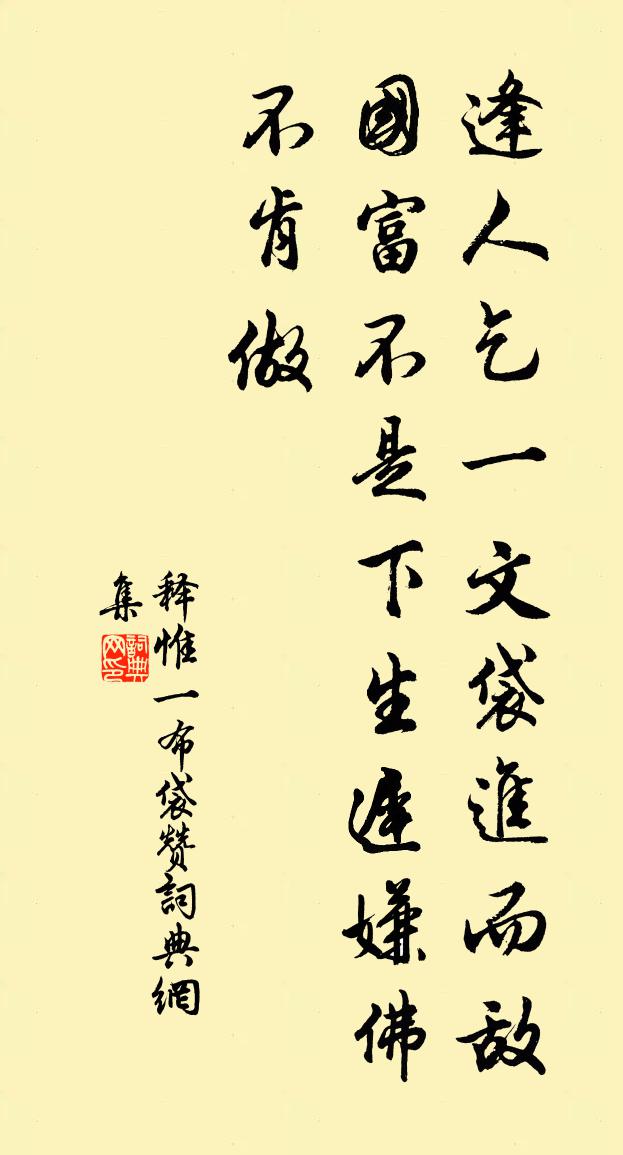 逢人乞一文袋進而敌
國富不是下生遲嫌佛
不肯做
释惟一布袋赞詞典網
集
詞典网印